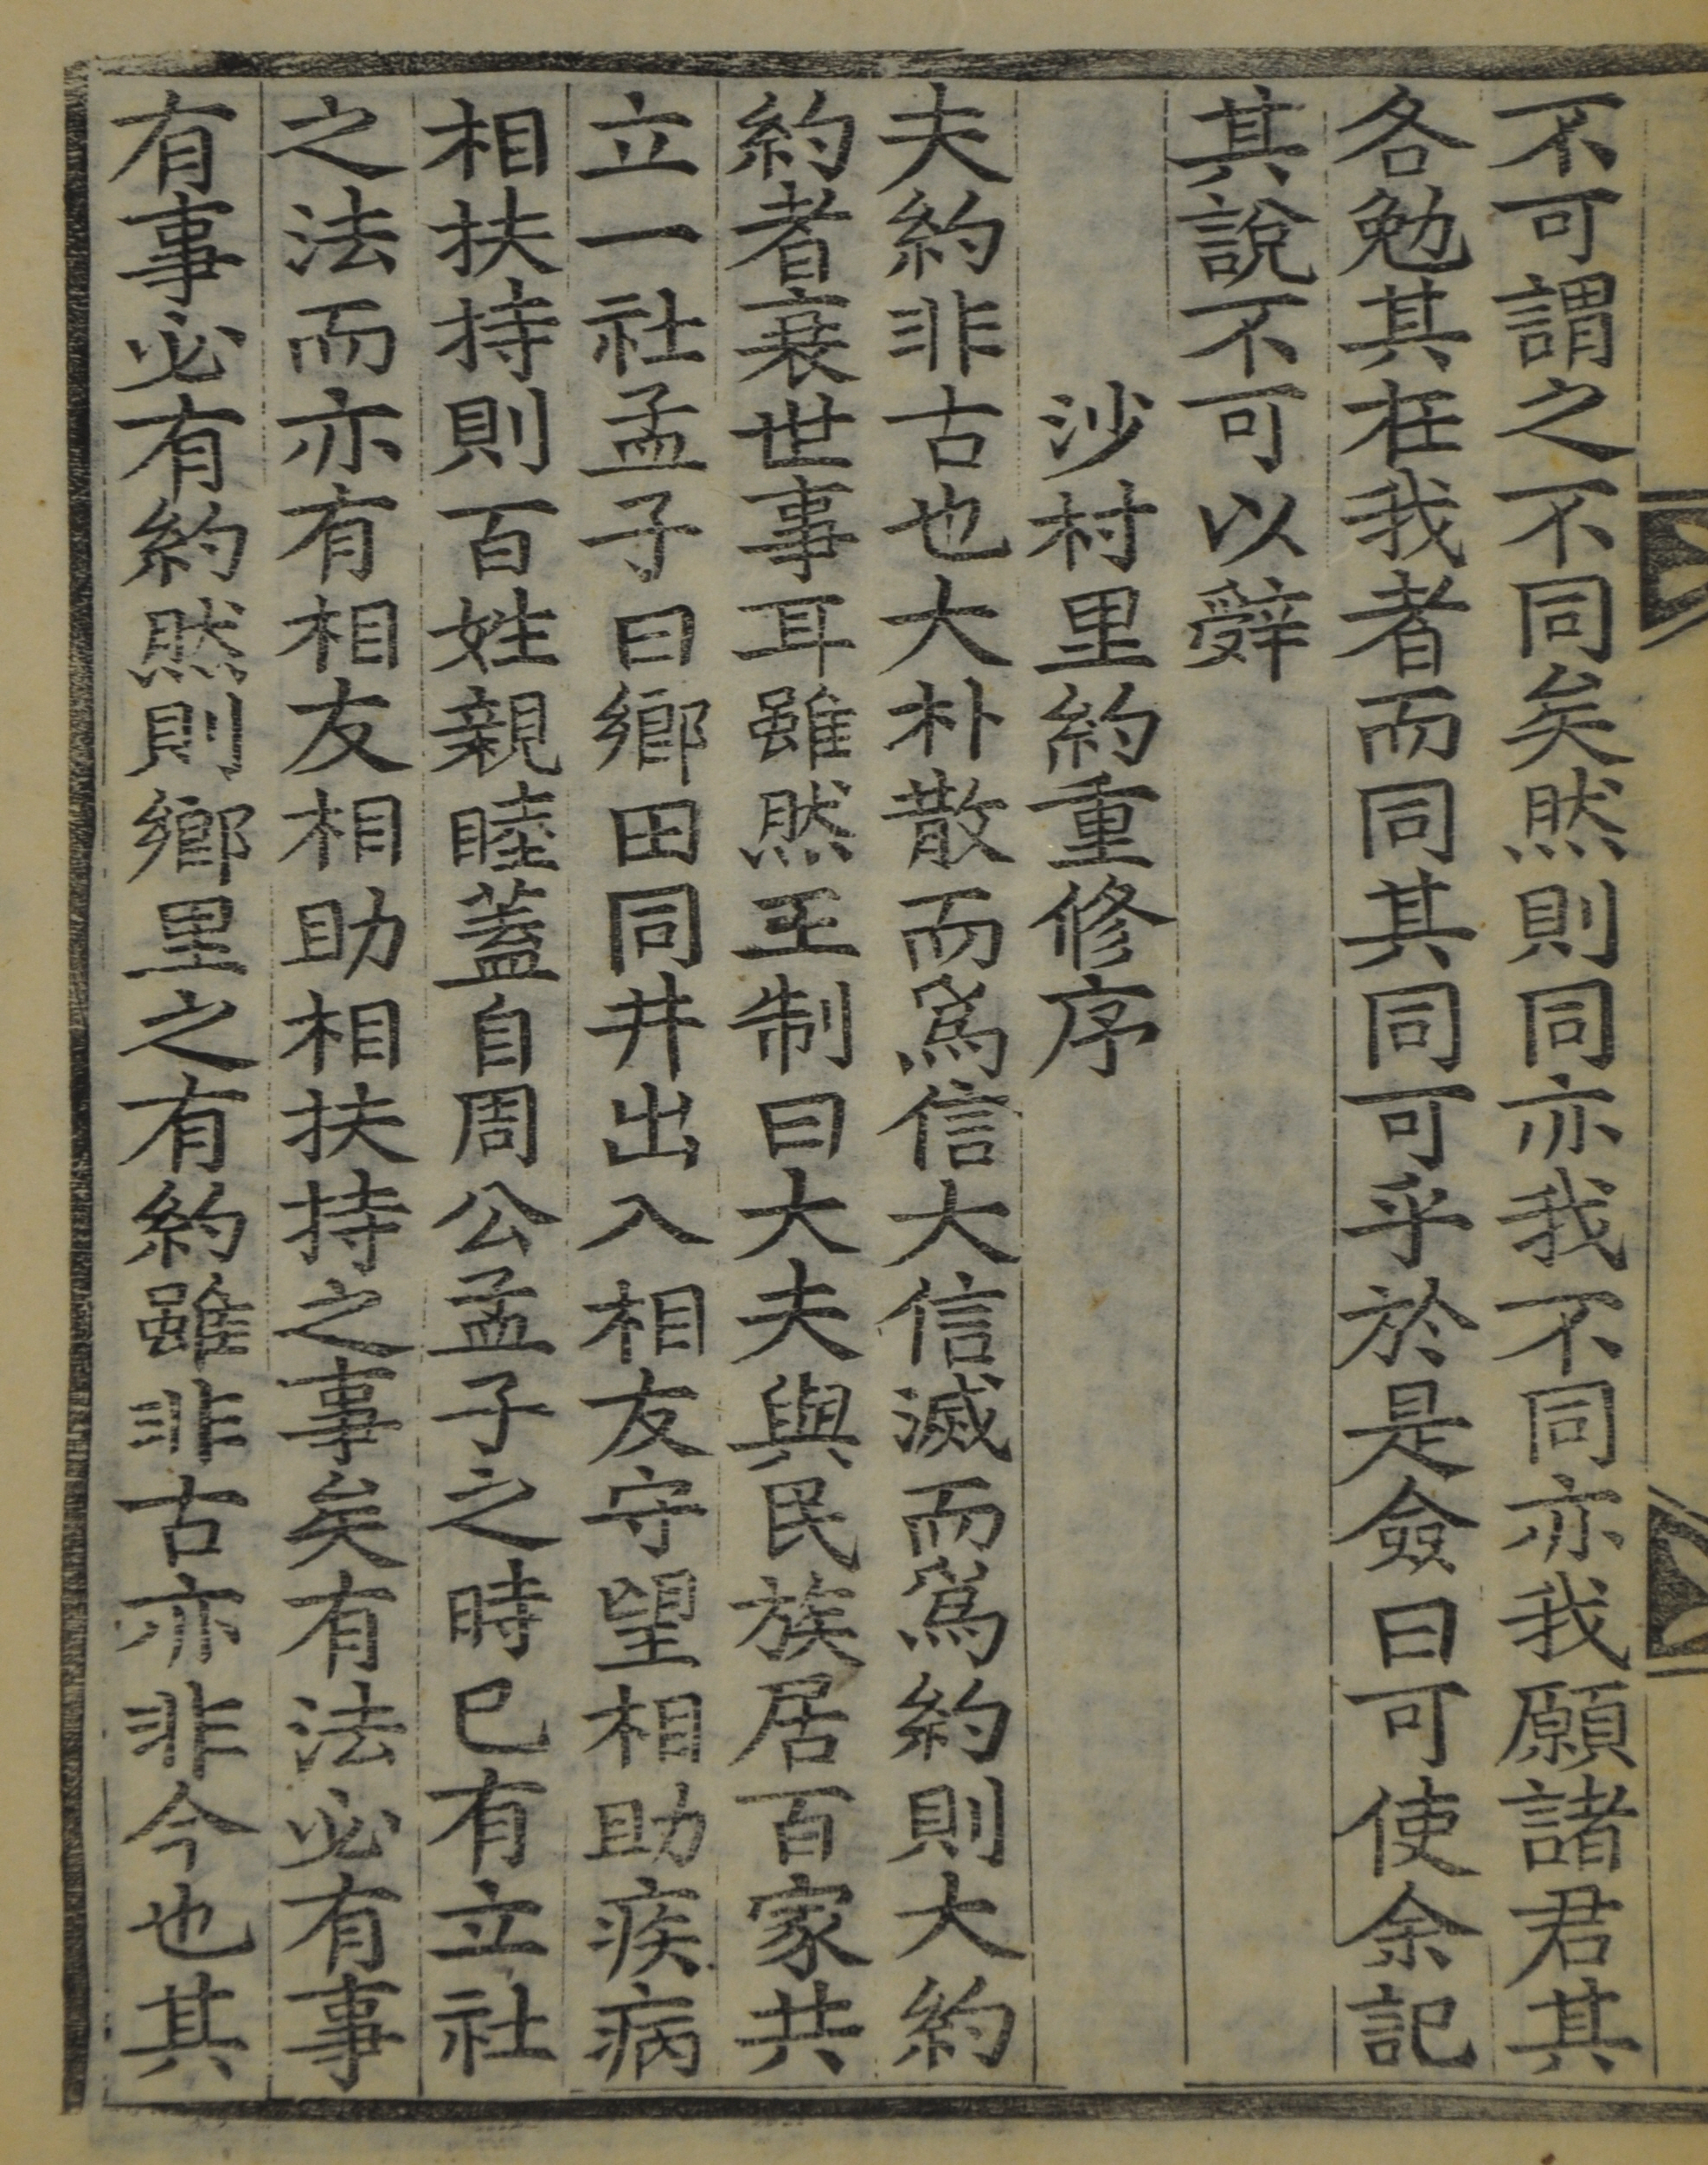 不可謂之不同矣然則同亦我不同亦我願諸君其
各勉其在我者而同其同可乎於是僉曰可使余記
其說不可以辭
沙村里約重修序
夫約非古也大朴散而爲信大信滅而爲約則大約
約者衰世事耳雖然王制曰大夫與民族居百家共
立一社孟子曰鄉田同井出入相友守望相助疾病
相扶持則百姓親睦蓋自周公孟子之時已有立社
之法而亦有相友相助相扶持之事矣有法必有事
有事必有約然則鄉里之有約雖非古亦非今也其